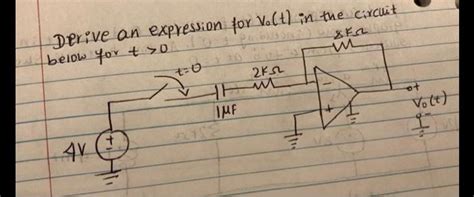 Derive an expression for Vo(t) in the circuit
below for t >0
8KΩ
t=0
2KΩ
1μF
4V
+
-
-
+
o+
Vo(t)
-